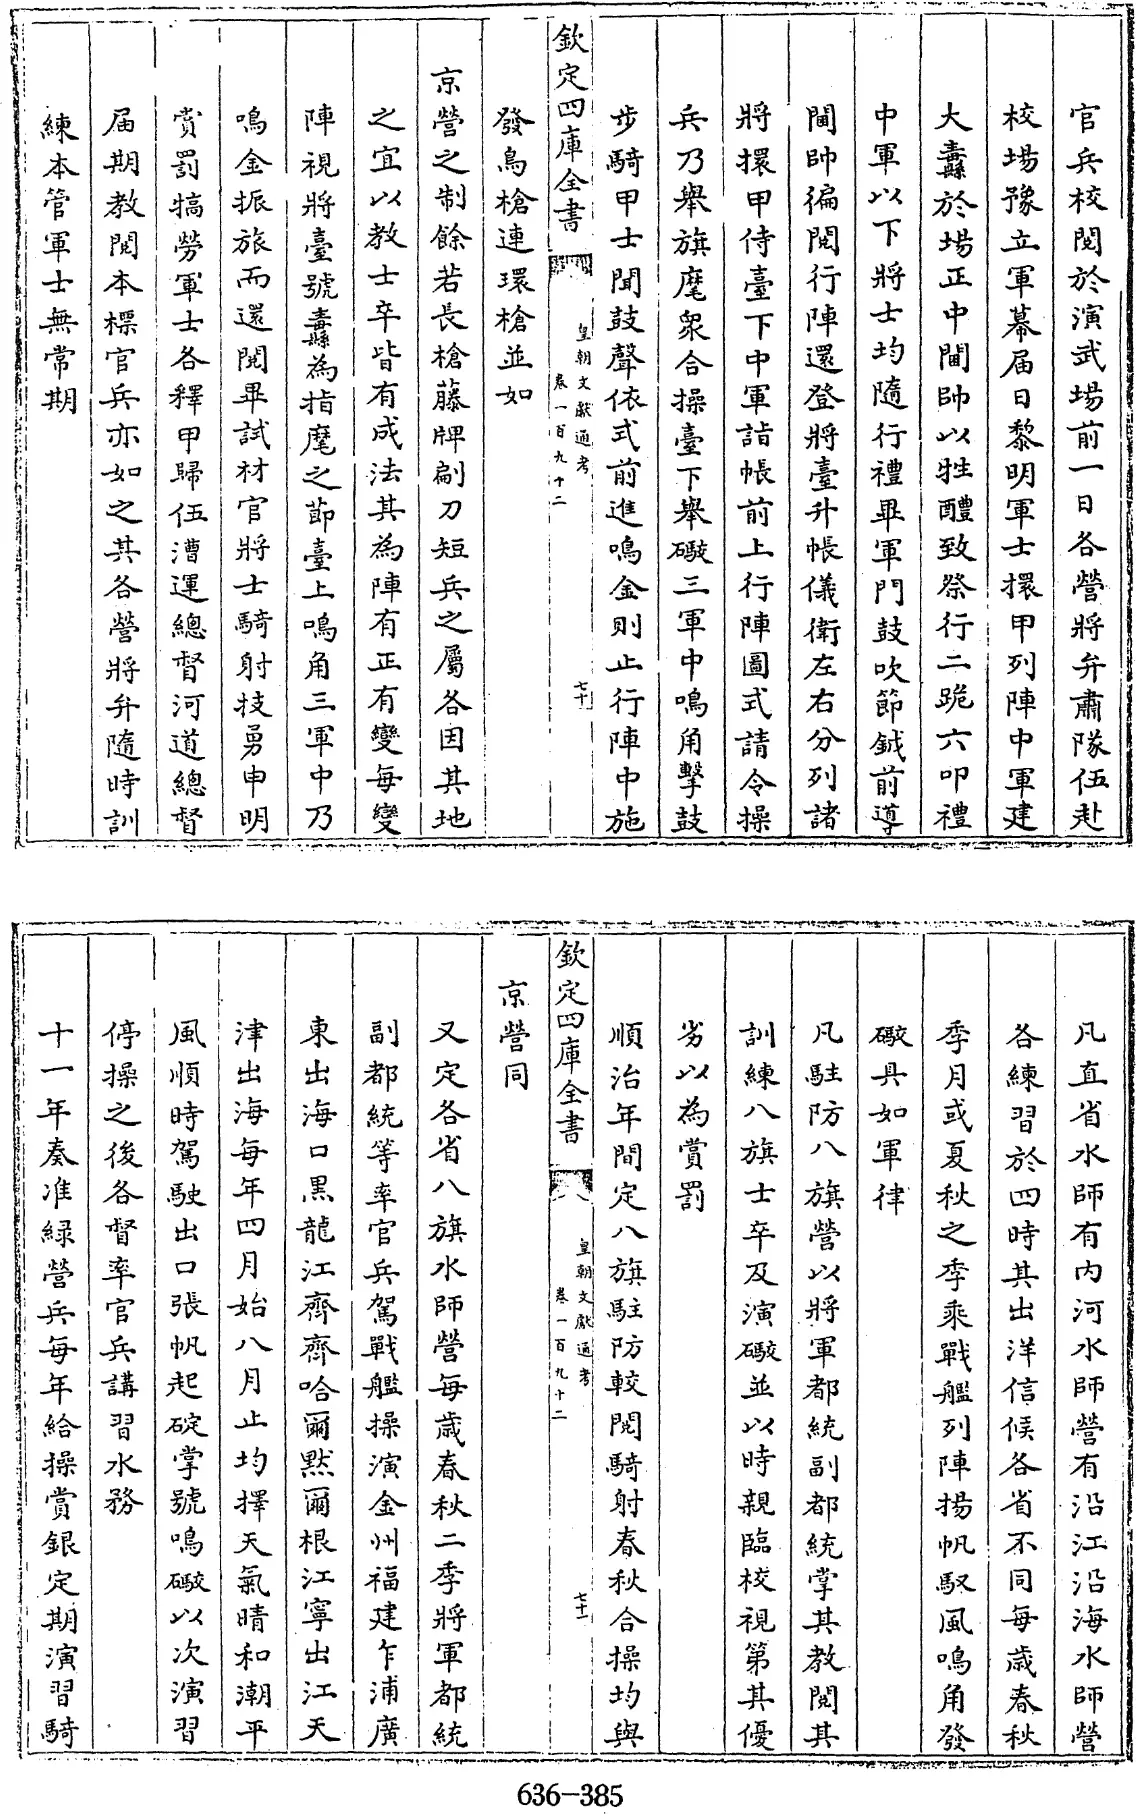 官兵校閱於演武場前一日各營將弁肅隊伍赴
校場豫立軍幕屆日黎明軍士擐甲列陣中軍建
大纛於場正中閫帥以牲醴致祭行二跪六叩禮
中軍以下將士均隨行禮畢軍門鼓吹節鉞前導
閫帥徧閱行陣還登將臺升帳儀衛左右分列諸
將擐甲侍臺下中軍詣帳前上行陣圖式請令操
兵乃舉旗麾衆合操臺下舉礮三軍中鳴角擊鼓
步騎甲士聞鼓聲依式前進鳴金則止行陣中施
欽定四庫全書
皇朝文獻通考
卷一百九十二
七十
發鳥槍連環槍並如
京營之制餘若長槍藤牌刷刀短兵之屬各因其地
之宜以教士卒皆有成法其為陣有正有變每變
陣視將臺號纛為指麾之節臺上鳴角三軍中乃
鳴金振旅而還閱畢試材官將士騎射技勇申明
賞罰犒勞軍士各釋甲歸伍漕運總督河道總督
屆期教閱本標官兵亦如之其各營將弁隨時訓
練本管軍士無常期
凡直省水師有內河水師營有沿江沿海水師營
各練習於四時其出洋信候各省不同每歲春秋
季月或夏秋之季乘戰艦列陣揚帆馭風鳴角發
礮具如軍律
凡駐防八旗營以將軍都統副都統掌其教閱其
訓練八旗士卒及演礮並以時親臨校視第其優
劣以為賞罰
順治年間定八旗駐防較閱騎射春秋合操均與
欽定四庫全書
皇朝文獻通考
卷一百九十二
七十一
京營同
又定各省八旗水師營每歲春秋二季將軍都統
副都統等率官兵駕戰艦操演金州福建乍浦廣
東出海口黑龍江齊齊哈爾默爾根江寧出江天
津出海每年四月始八月止均擇天氣晴和潮平
風順時駕駛出口張帆起碇掌號鳴礮以次演習
停操之後各督率官兵講習水務
十一年奏准綠營兵每年給操賞銀定期演習騎
636-385